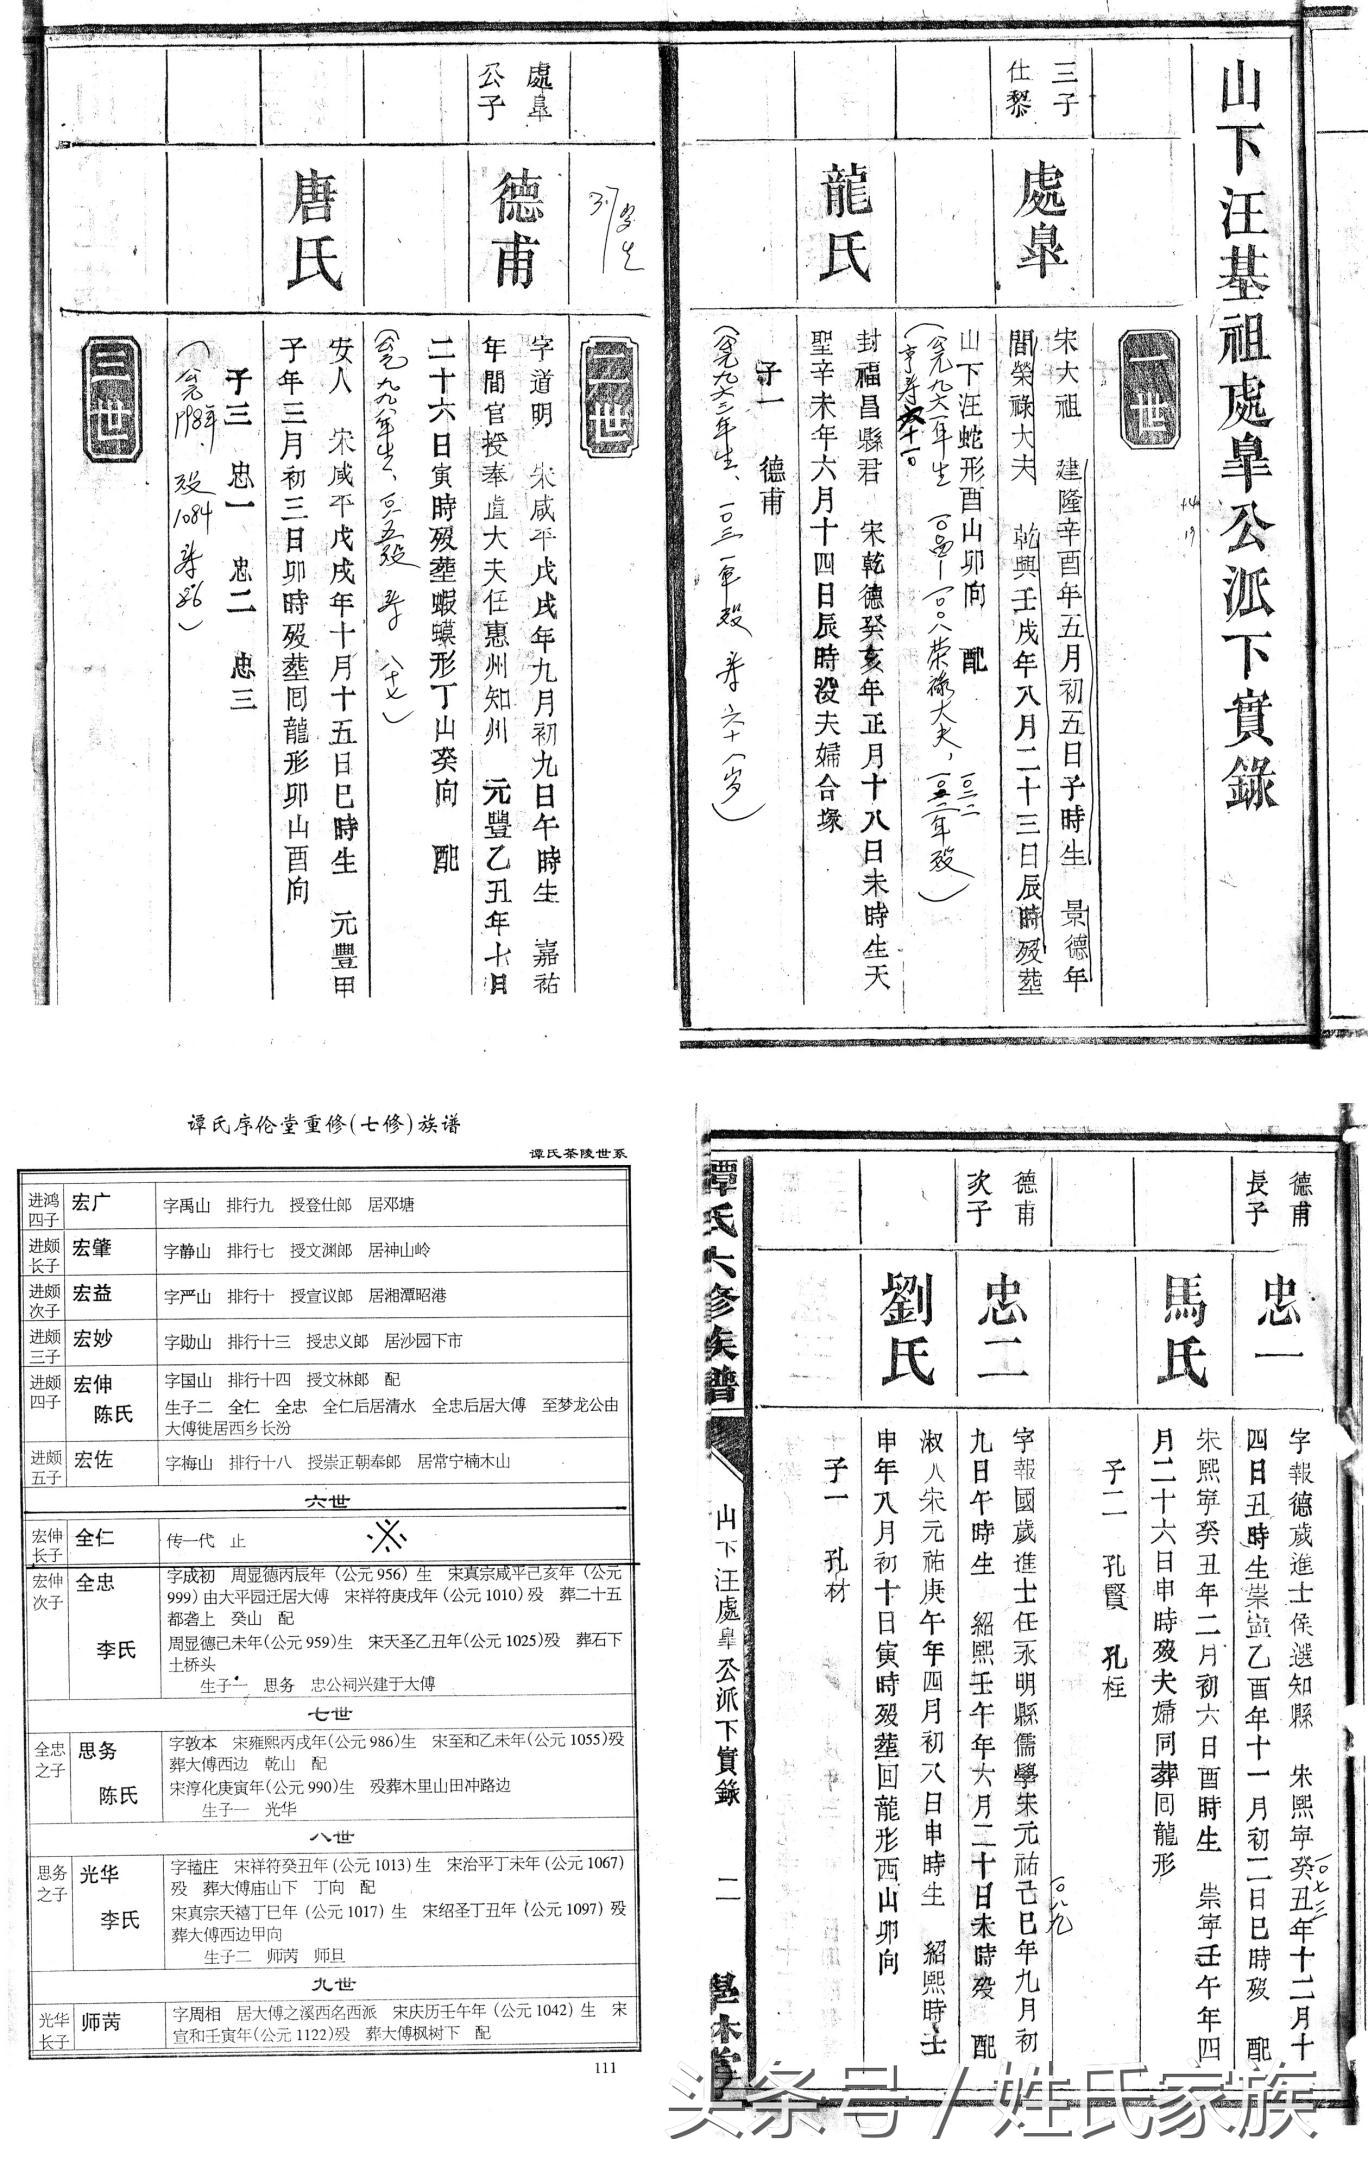 山下汪基祖處臯公派下實錄
一世
三子
仕黎
處臯
宋太祖 建隆辛酉年五月初五日子時生 景德年
間榮祿大夫 乾興壬戌年八月二十三日辰時歿葬
山下汪蛇形酉山卯向 配
享寿六十一
龍氏
封福昌縣君 宋乾德癸亥年正月十八日未時生天
聖辛未年六月十四日辰時没夫婦合塚
子一 德甫
(公元九六三年生、一〇三一年歿 寿六十八岁)
二世
處臯
公子
德甫
字道明 宋咸平戊戌年九月初九日午時生 嘉祐
年間官授奉直大夫任惠州知州 元豐乙丑年七月
二十六日寅時歿葬蝦蟆形丁山癸向 配
唐氏
安人 宋咸平戊戌年十月十五日巳時生 元豐甲
子年三月初三日卯時歿葬囘龍形卯山酉向
子三 忠一 忠二 忠三
(公元998年 殁1084 寿86)
三世
德甫
長子
忠一
字報德歲進士候選知縣 宋熙寧癸丑年十二月十
一〇七三
四日丑時生崇寧乙酉年十一月初二日巳時歿 配
馬氏
宋熙寧癸丑年二月初六日酉時生 崇寧壬午年四
月二十六日申時歿夫婦同葬囘龍形
子二 孔賢 孔枉
德甫
次子
忠二
字報國歲進士任永明縣儒學宋元祐己巳年九月初
一〇八九
九日午時生 紹熙壬午年六月二十日未時歿 配
劉氏
淑人宋元祐庚午年四月初八日申時生 紹熙時士
申年八月初十日寅時歿葬回龍形西山卯向
子一 孔材
譚氏六修族譜
山下汪處臯公派下實錄
二
學林堂
谭氏序伦堂重修(七修)族谱
谭氏茶陵世系
进鸿四子 宏广 字禹山 排行九 授登仕郎 居邓塘
进颇长子 宏肇 字静山 排行七 授文渊郎 居神山岭
进颇次子 宏益 字严山 排行十 授宣议郎 居湘潭昭港
进颇三子 宏妙 字勋山 排行十三 授忠义郎 居沙园下市
进颇四子 宏伸 字国山 排行十四 授文林郎 配
陈氏 生子二 全仁 全忠 全仁后居清水 全忠后居大傅 至梦龙公由
大傅徙居西乡长汾
进颇五子 宏佐 字梅山 排行十八 授崇正朝奉郎 居常宁楠木山
六世
宏伸长子 全仁 传一代 止
宏伸次子 全忠 字成初 周显德丙辰年(公元956)生 宋真宗咸平己亥年(公元
999)由大平园迁居大傅 宋祥符庚戌年(公元1010)殁 葬二十五
都砻上 癸山 配
李氏 周显德己未年(公元959)生 宋天圣乙丑年(公元1025)殁 葬石下
土桥头
生子一 思务 忠公祠兴建于大傅
七世
全忠之子 思务 字敦本 宋雍熙丙戌年(公元986)生 宋至和乙未年(公元1055)殁
葬大傅西边 乾山 配
陈氏 宋淳化庚寅年(公元990)生 殁葬木里山田冲路边
生子一 光华
八世
思务之子 光华 字禧庄 宋祥符癸丑年(公元1013)生 宋治平丁未年(公元1067)
殁 葬大傅庙山下 丁向 配
李氏 宋真宗天禧丁巳年(公元1017)生 宋绍圣丁丑年(公元1097)殁
葬大傅西边甲向
生子二 师芮 师旦
九世
光华长子 师芮 字周相 居大傅之溪西名西派 宋庆历壬午年(公元1042)生 宋
宣和壬寅年(公元1122)殁 葬大傅枫树下 配
111
头条号/姓氏家族